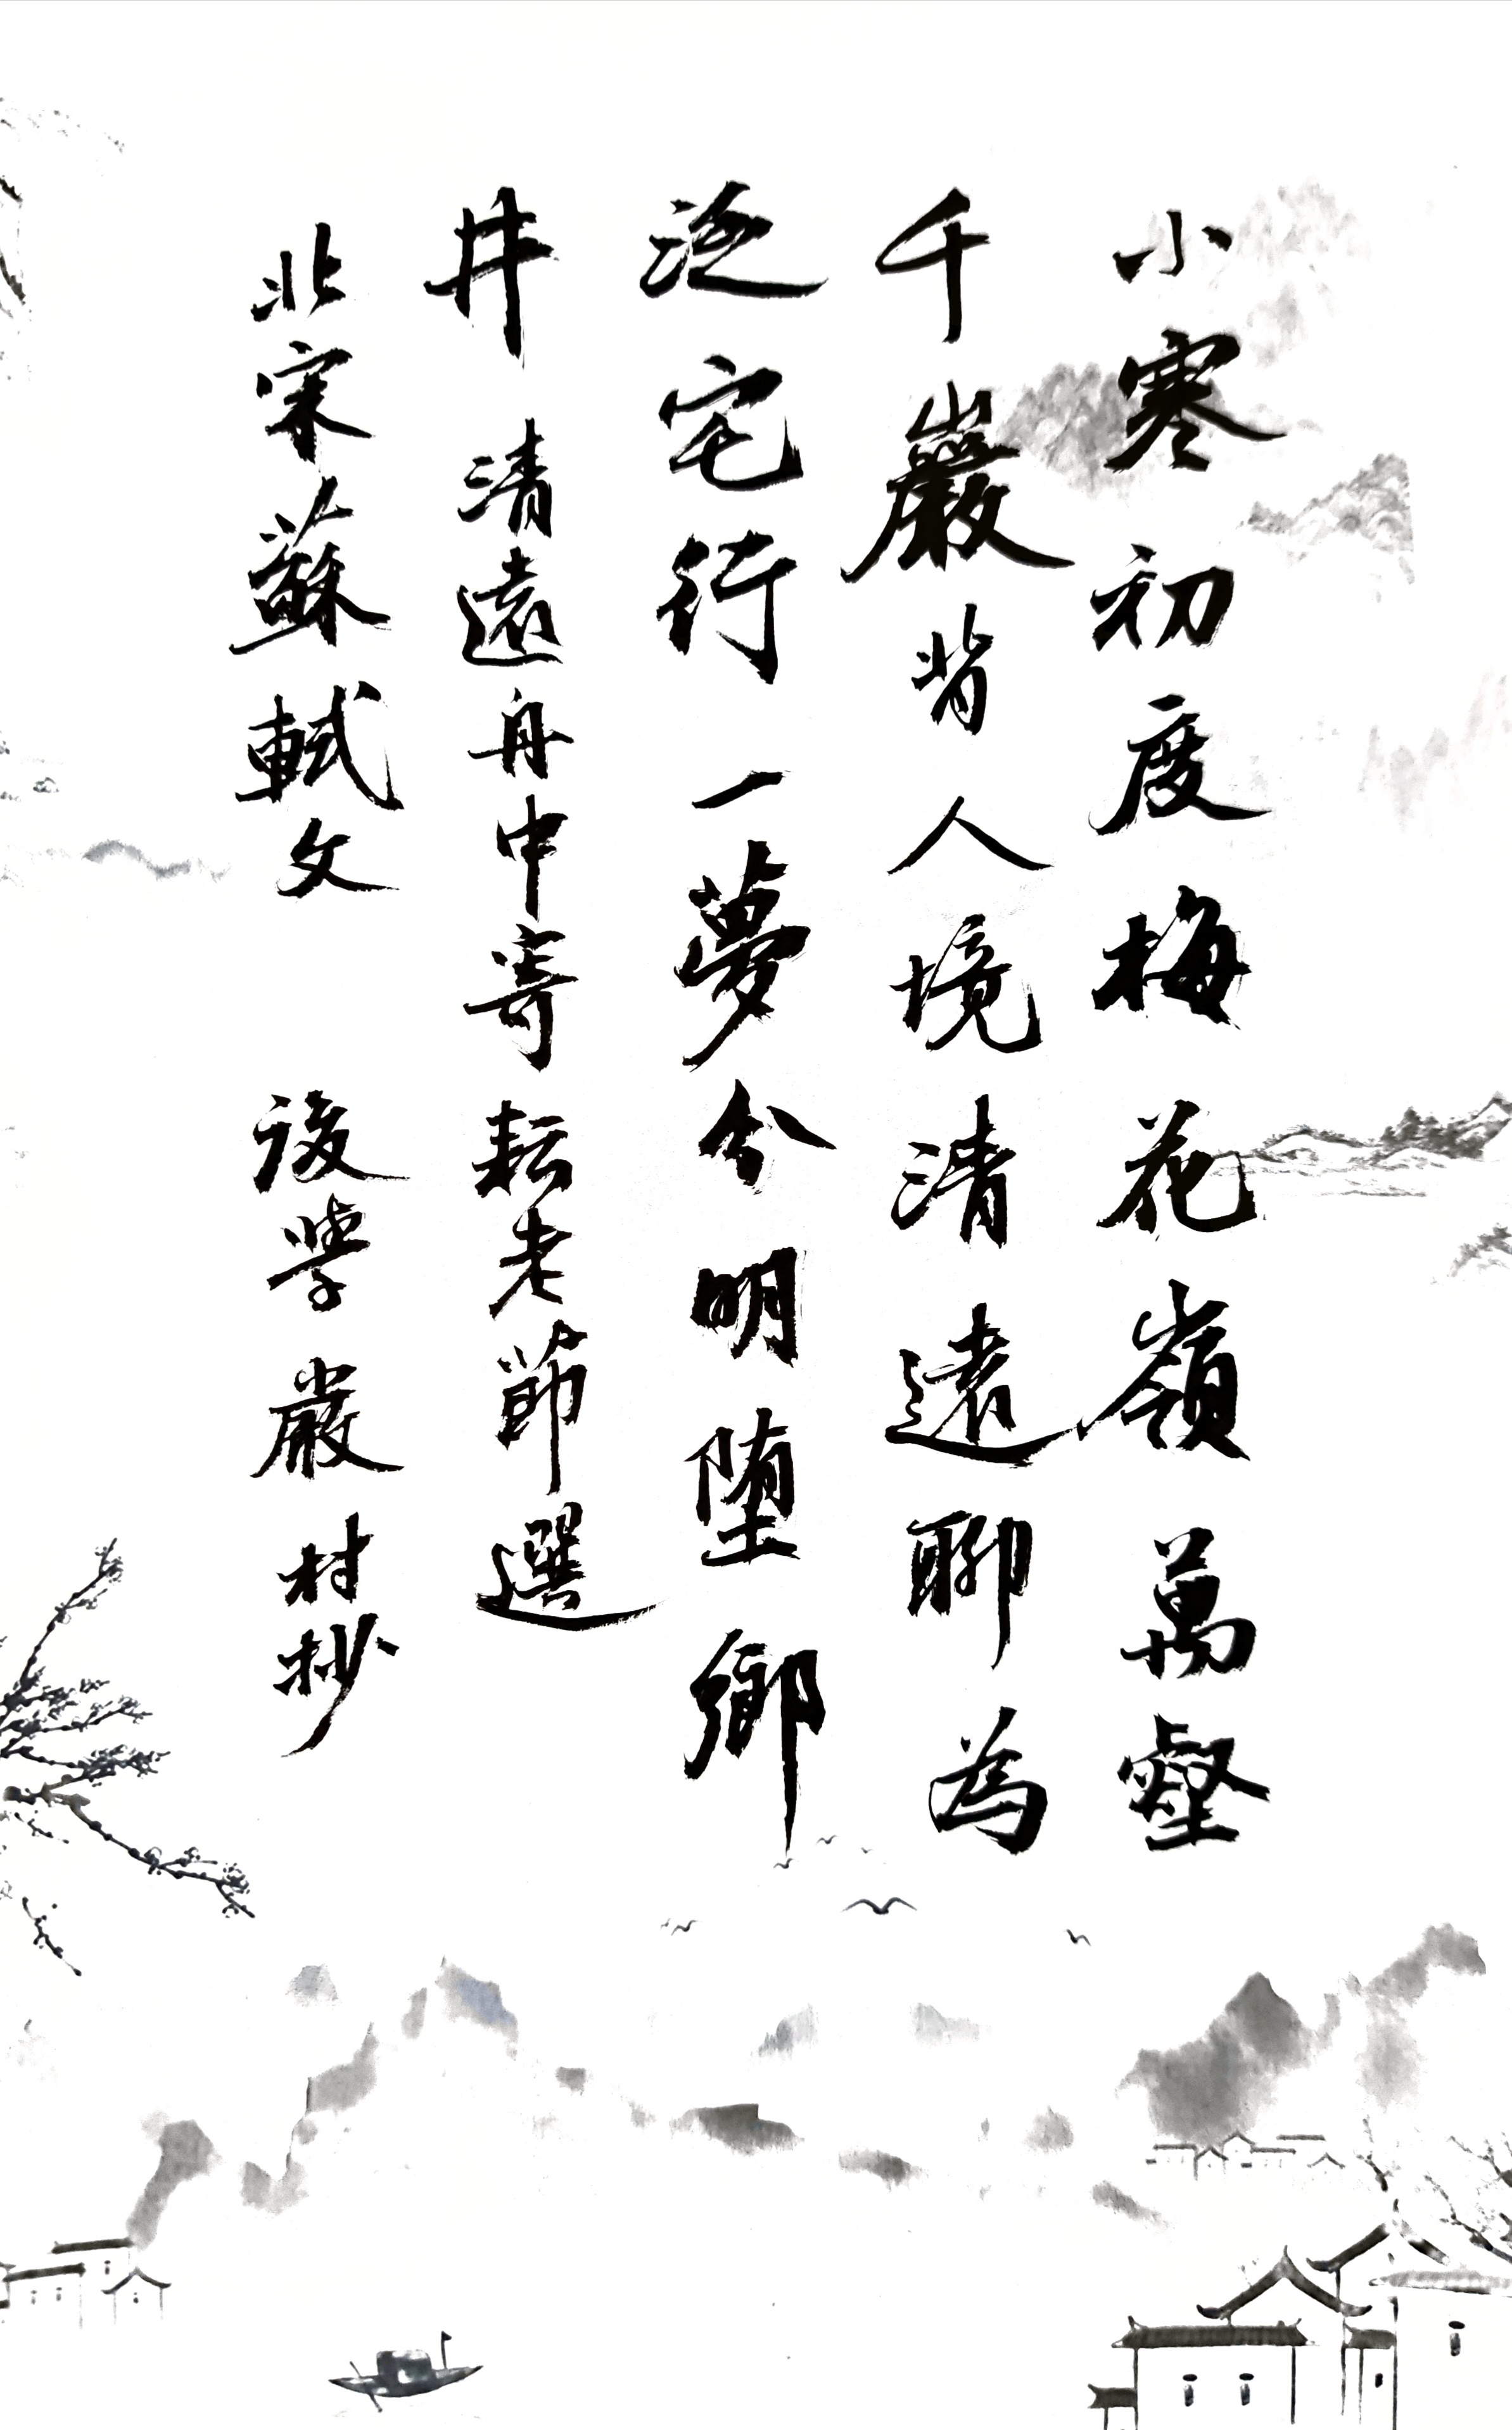 小寒初度梅花嶺萬壑
千巖背人境清遠聊為
泛宅行一夢分明堕鄉
井 清遠舟中寄耘老節選
北宋蘇軾文 後學嚴村抄